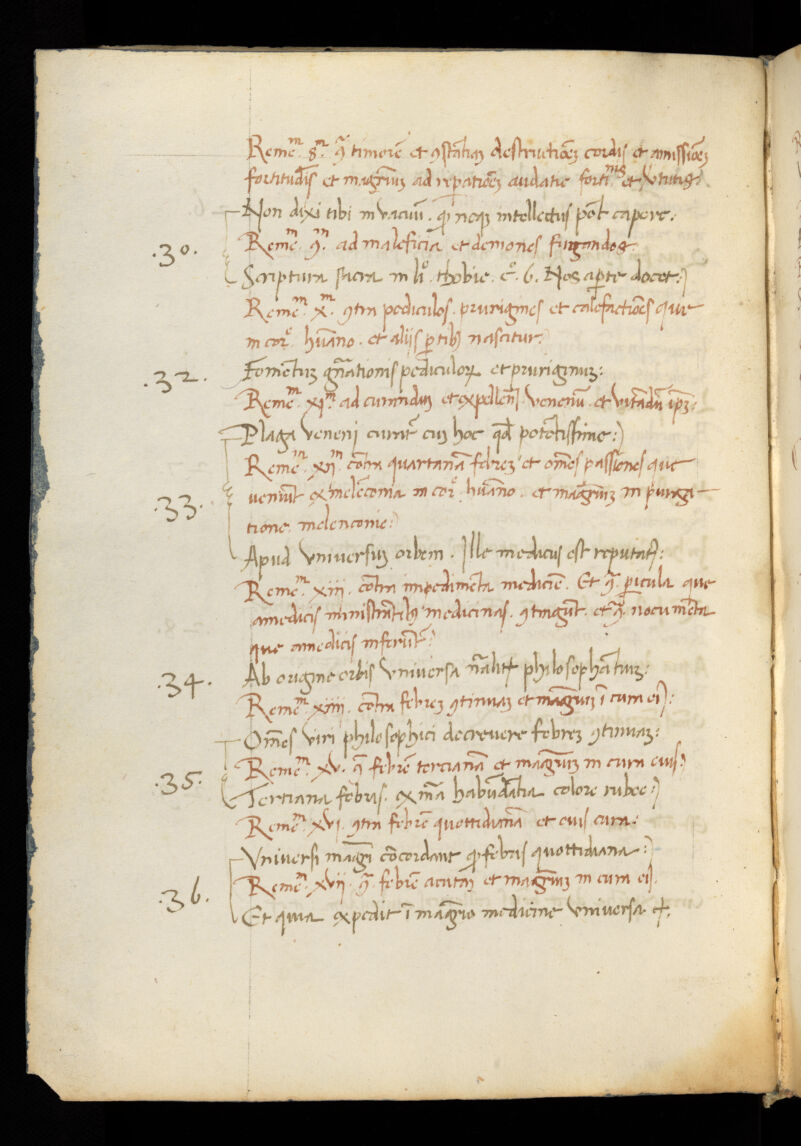 Remem. 8m. ꝯ̃ timorẽ et ꝯstãtiaʒ destructiõeʒ cordis et amissiõeʒ
fortitudĩs et magrĩuʒ ad repatiõeʒ audatie fortitis et
Non dixi tibi in vacuũ. qi neqʒ intellectus põt capere.
.30. Remem. 9m. ad maleficia et demones fugandos.
Scriptura sacra in lio. thobie. co. 6. Nos apte docet:)
Remem. xm. ꝯtra pediculos. prurigines et calefactiões que
in coro. hũano. et aliis ptibʒ nascitur.
.32. Fomẽtuʒ gñationis pediculoꝝ et pruriginuʒ:
Remem. xim. ad curanduʒ et expellendũ venenũ et vitãdũ ipʒ:
Plaga veneni curatr cuʒ hoc qd potẽtissime:)
Remem. xij. cõtra quartanã febreʒ et omẽs passiones que
.33. veniũt ex melẽconia in coro. hũano. et magrĩuʒ in purga
tione melenconie:)
Apud vniversuʒ orbem. Ille medicus est reputatus:
Remem. xiii. cõtra impedimẽta medicĩe. Et ꝯ̃ picula que
amedicis ministrãtibʒ medicinas. ꝯtingũt. et ꝯ̃ nocumẽta
que amedicis inferũtr:
.34. Ab origine orbis vniversa nãlitr philosophãtiuʒ:
Remem. xiiii. cõtra febreʒ ꝯtinuaʒ et magrĩuʒ ĩ cura eiʒ:
Omẽs viri philosophici decrevere febreʒ ꝯtinuaʒ:
.35. Remem. xv. ꝯ̃ febrẽ tercianã et magrĩuʒ in cura euis:
Tertiana febris. ex mã habũdãtia colore rubee:)
Remem. xvi. ꝯtra febrẽ quottidianã et euis cura:
Vniversi magri cõcordant qi febris quottidiana:)
.36. Remem. xvij. ꝯ̃ febrẽ acutaʒ et magrĩuʒ in cura eiʒ.
Et quia expedit ĩ magrio medicine vniversa et.